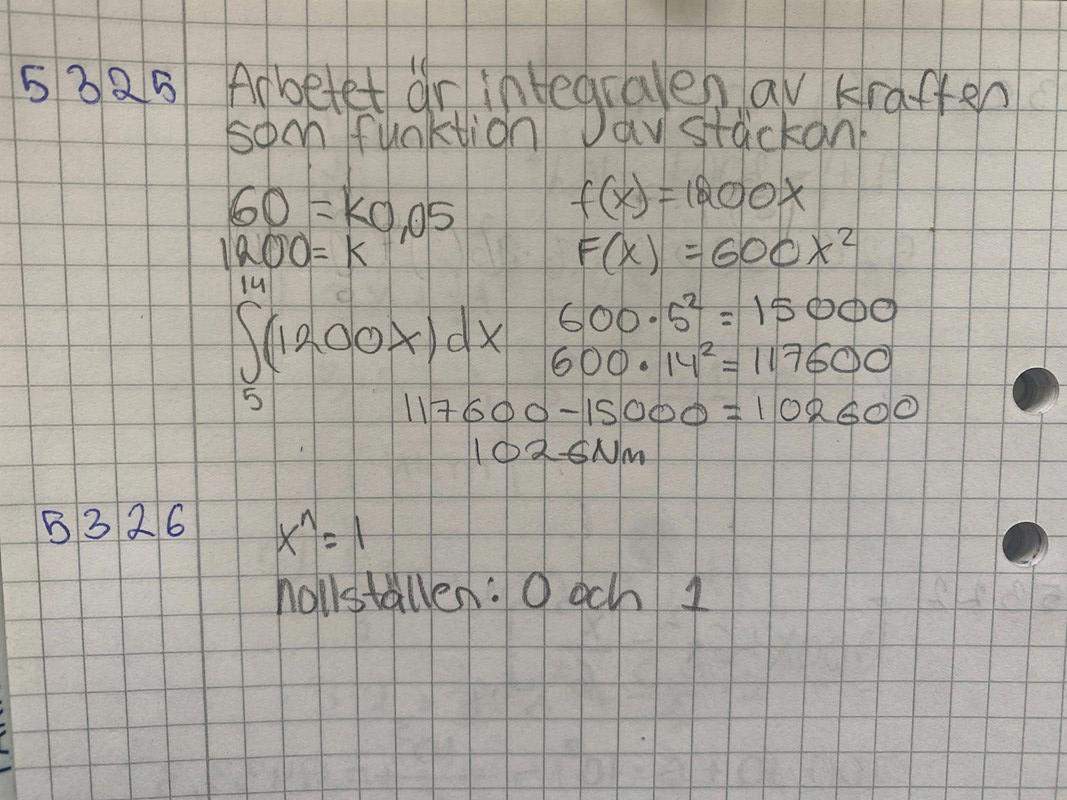 5325 Arbetet är integralen av kraften
som funktion av stäckan.
60 = k0,05 f(x) = 1200x
1200 = k F(x) = 600x²
14
∫(1200x)dx 600·5² = 15000
5 600·14² = 117600
117600 - 15000 = 102600
1026Nm
5326 xⁿ = 1
nollställen: 0 och 1